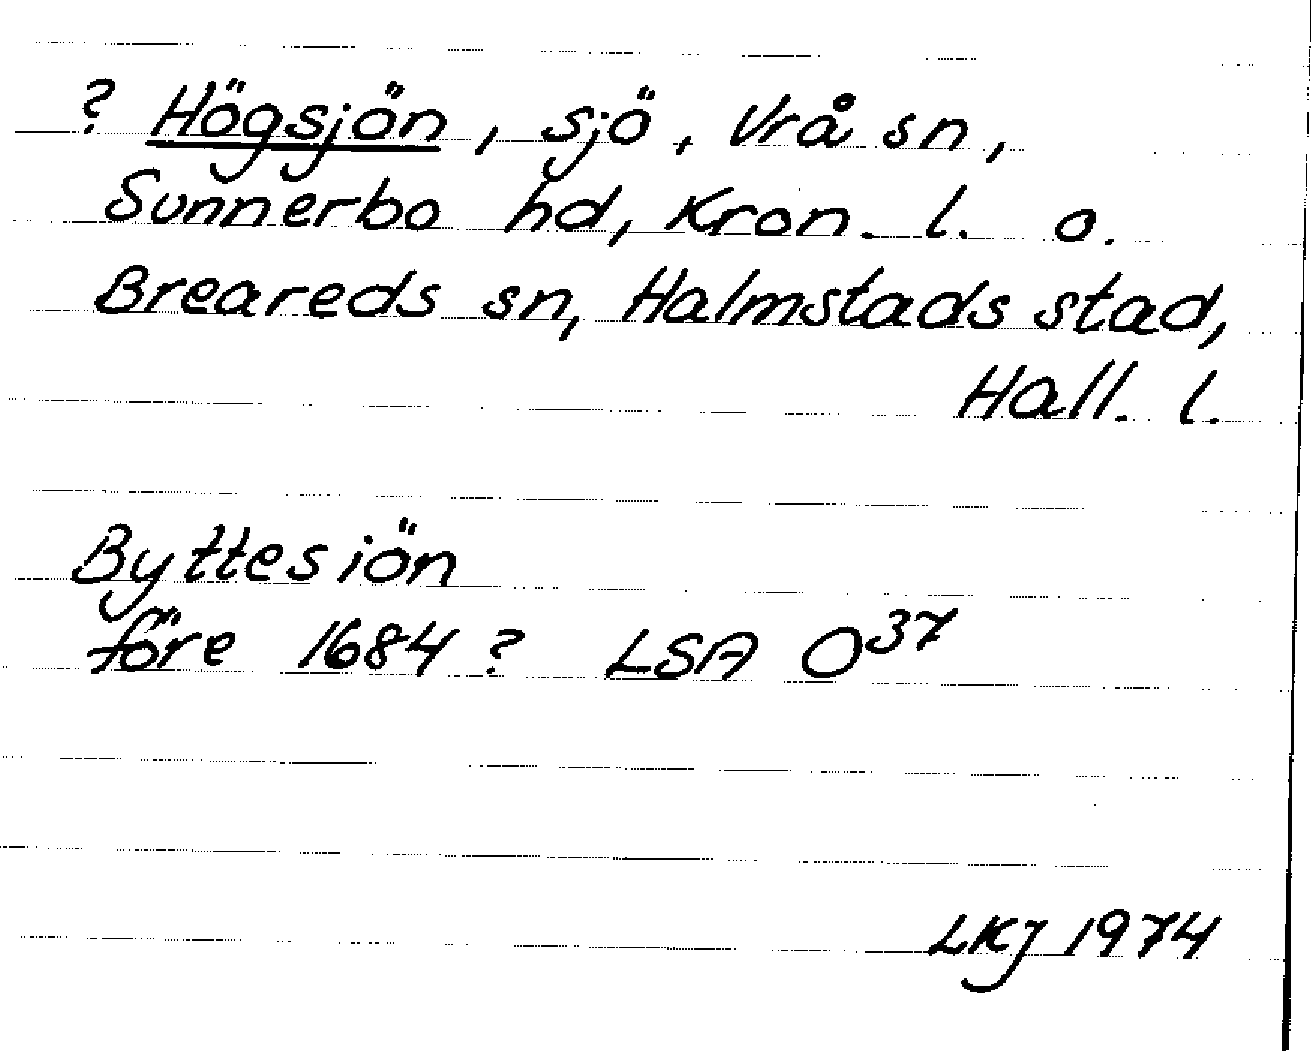 ? Högsjön, sjö, Vrå sn,
Sunnerbo hd, Kron. l. o.
Breareds sn, Halmstads stad,
Hall. l.
Byttesiön
före 1684? LSA O37
LKJ 1974